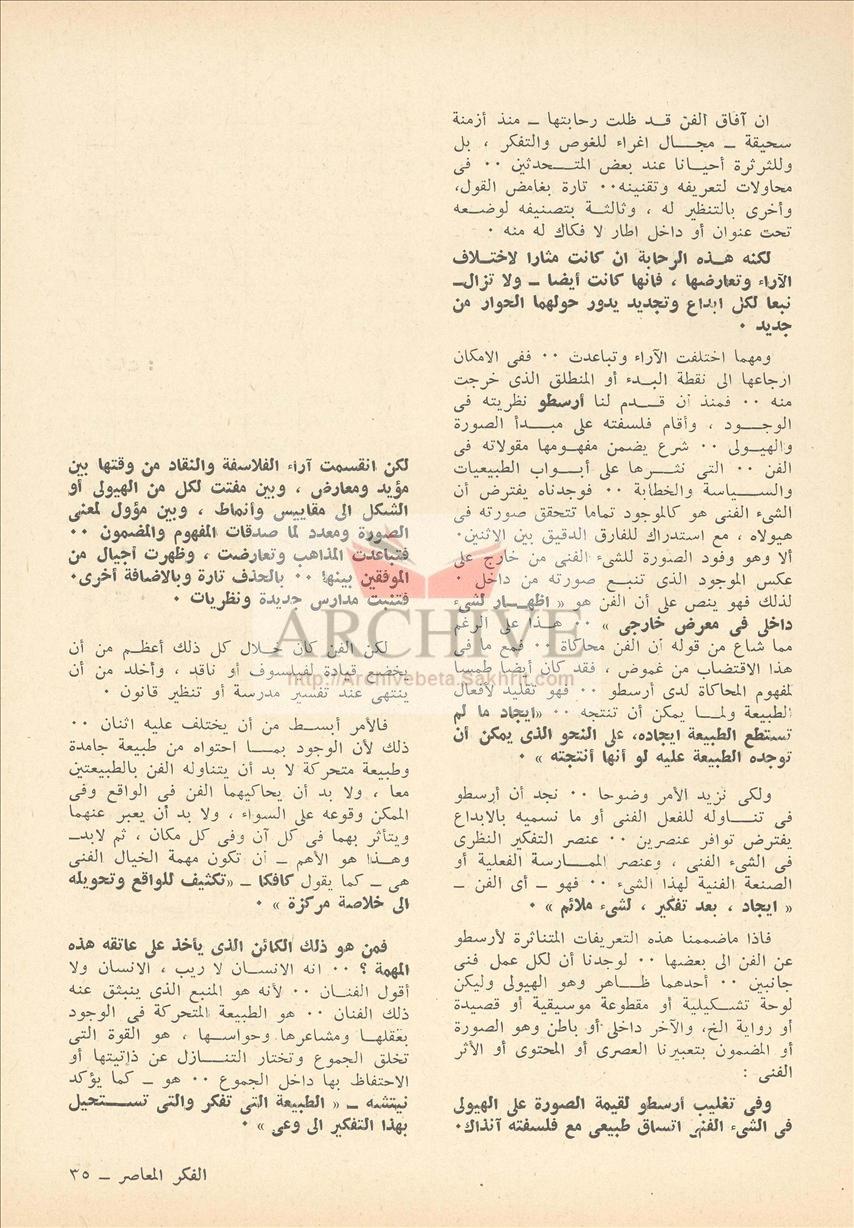 ان آفاق الفن قد ظلت رحابتها ــ منذ أزمنة
سحيقة ــ مجال اغراء للغوص والتفكر ، بل
وللثرثرة أحيانا عند بعض المتحدثين ٠٠ فى
محاولات لتعريفه وتقنينه٠٠ تارة بغامض القول،
وأخرى بالتنظير له ، وثالثة بتصنيفه لوضعه
تحت عنوان أو داخل اطار لا فكاك له منه ٠
لكنه هذه الرحابة ان كانت مثارا لاختلاف
الآراء وتعارضها ، فانها كانت أيضا ــ ولا تزال ــ
نبعا لكل ابداع وتجديد يدور حولهما الحوار من
جديد ٠
ومهما اختلفت الآراء وتباعدت ٠٠ ففى الامكان
ارجاعها الى نقطة البدء أو المنطلق الذى خرجت
منه ٠٠ فمنذ أن قدم لنا أرسطو نظريته فى
الوجود ، وأقام فلسفته على مبدأ الصورة
والهيولى ٠٠ شرع يضمن مفهومها مقولاته فى
الفن ٠٠ التى نثرها على أبواب الطبيعيات
والسياسة والخطابة ٠٠ فوجدناه يفترض أن
الشىء الفنى هو كالموجود تماما تتحقق صورته فى
هيولاه ، مع استدراك للفارق الدقيق بين الاثنين٠
ألا وهو وفود الصورة للشىء الفنى من خارج على
عكس الموجود الذى تنبع صورته من داخل ٠
لذلك فهو ينص على أن الفن هو « اظهار لشىء
داخلى فى معرض خارجى » ٠٠ هذا على الرغم
مما شاع من قوله أن الفن محاكاة ٠٠ فمع ما فى
هذا الاقتضاب من غموض ، فقد كان أيضا طمسا
لمفهوم المحاكاة لدى أرسطو ٠٠ فهو تقليد لأفعال
الطبيعة ولما يمكن أن تنتجه ٠٠ «ايجاد ما لم
تستطع الطبيعة ايجاده، على النحو الذى يمكن أن
توجده الطبيعة عليه لو أنها أنتجته » ٠
ولكى نزيد الأمر وضوحا ٠٠ نجد أن أرسطو
فى تناوله للفعل الفنى أو ما نسميه بالابداع
يفترض توافر عنصرين ٠٠ عنصر التفكير النظرى
فى الشىء الفنى ، وعنصر الممارسة الفعلية أو
الصنعة الفنية لهذا الشىء ٠٠ فهو ــ أى الفن ــ
« ايجاد ، بعد تفكير ، لشىء ملائم » ٠
فاذا ماضممنا هذه التعريفات المتناثرة لأرسطو
عن الفن الى بعضها ٠٠ لوجدنا أن لكل عمل فنى
جانبين ٠٠ أحدهما ظاهر وهو الهيولى وليكن
لوحة تشكيلية أو مقطوعة موسيقية أو قصيدة
أو رواية الخ، والآخر داخلى أو باطن وهو الصورة
أو المضمون بتعبيرنا العصرى أو المحتوى أو الأثر
الفنى :
وفى تغليب أرسطو لقيمة الصورة على الهيولى
فى الشىء الفنى اتساق طبيعى مع فلسفته آنذاك٠
لكن انقسمت آراء الفلاسفة والنقاد من وقتها بين
مؤيد ومعارض ، وبين مفتت لكل من الهيولى أو
الشكل الى مقاييس وأنماط ، وبين مؤول لمعنى
الصورة ومعدد لما صدقات المفهوم والمضمون ٠٠
فتباعدت المذاهب وتعارضت ، وظهرت أجيال من
الموفقين بينها ٠٠ بالحذف تارة وبالاضافة أخرى٠
فتنبت مدارس جديدة ونظريات ٠
لكن الفن كان خلال كل ذلك أعظم من أن
يخضع قيادة لفيلسوف أو ناقد ، وأخلد من أن
ينتهى عند تفسير مدرسة أو تنظير قانون ٠
فالأمر أبسط من أن يختلف عليه اثنان ٠٠
ذلك لأن الوجود بما احتواه من طبيعة جامدة
وطبيعة متحركة لا بد أن يتناوله الفن بالطبيعتين
معا ، ولا بد أن يحاكيهما الفن فى الواقع وفى
الممكن وقوعه على السواء ، ولا بد أن يعبر عنهما
ويتأثر بهما فى كل آن وفى كل مكان ، ثم لابد ــ
وهذا هو الأهم ــ أن تكون مهمة الخيال الفنى
هى ــ كما يقول كافكا ــ «تكثيف للواقع وتحويله
الى خلاصة مركزة » ٠
فمن هو ذلك الكائن الذى يأخذ على عاتقه هذه
المهمة ؟ ٠٠ انه الانسان لا ريب ، الانسان ولا
أقول الفنان ٠٠ لأنه هو المنبع الذى ينبثق عنه
ذلك الفنان ٠٠ هو الطبيعة المتحركة فى الوجود
بعقلها ومشاعرها وحواسها ، هو القوة التى
تخلق الجموع وتختار التنازل عن ذاتيتها أو
الاحتفاظ بها داخل الجموع ٠٠ هو ــ كما يؤكد
نيتشه ــ « الطبيعة التى تفكر والتى تستحيل
بهذا التفكير الى وعى » ٠
الفكر المعاصر ــ ٣٥
ARCHIVE
http://Archivebeta.Sakhrit.com